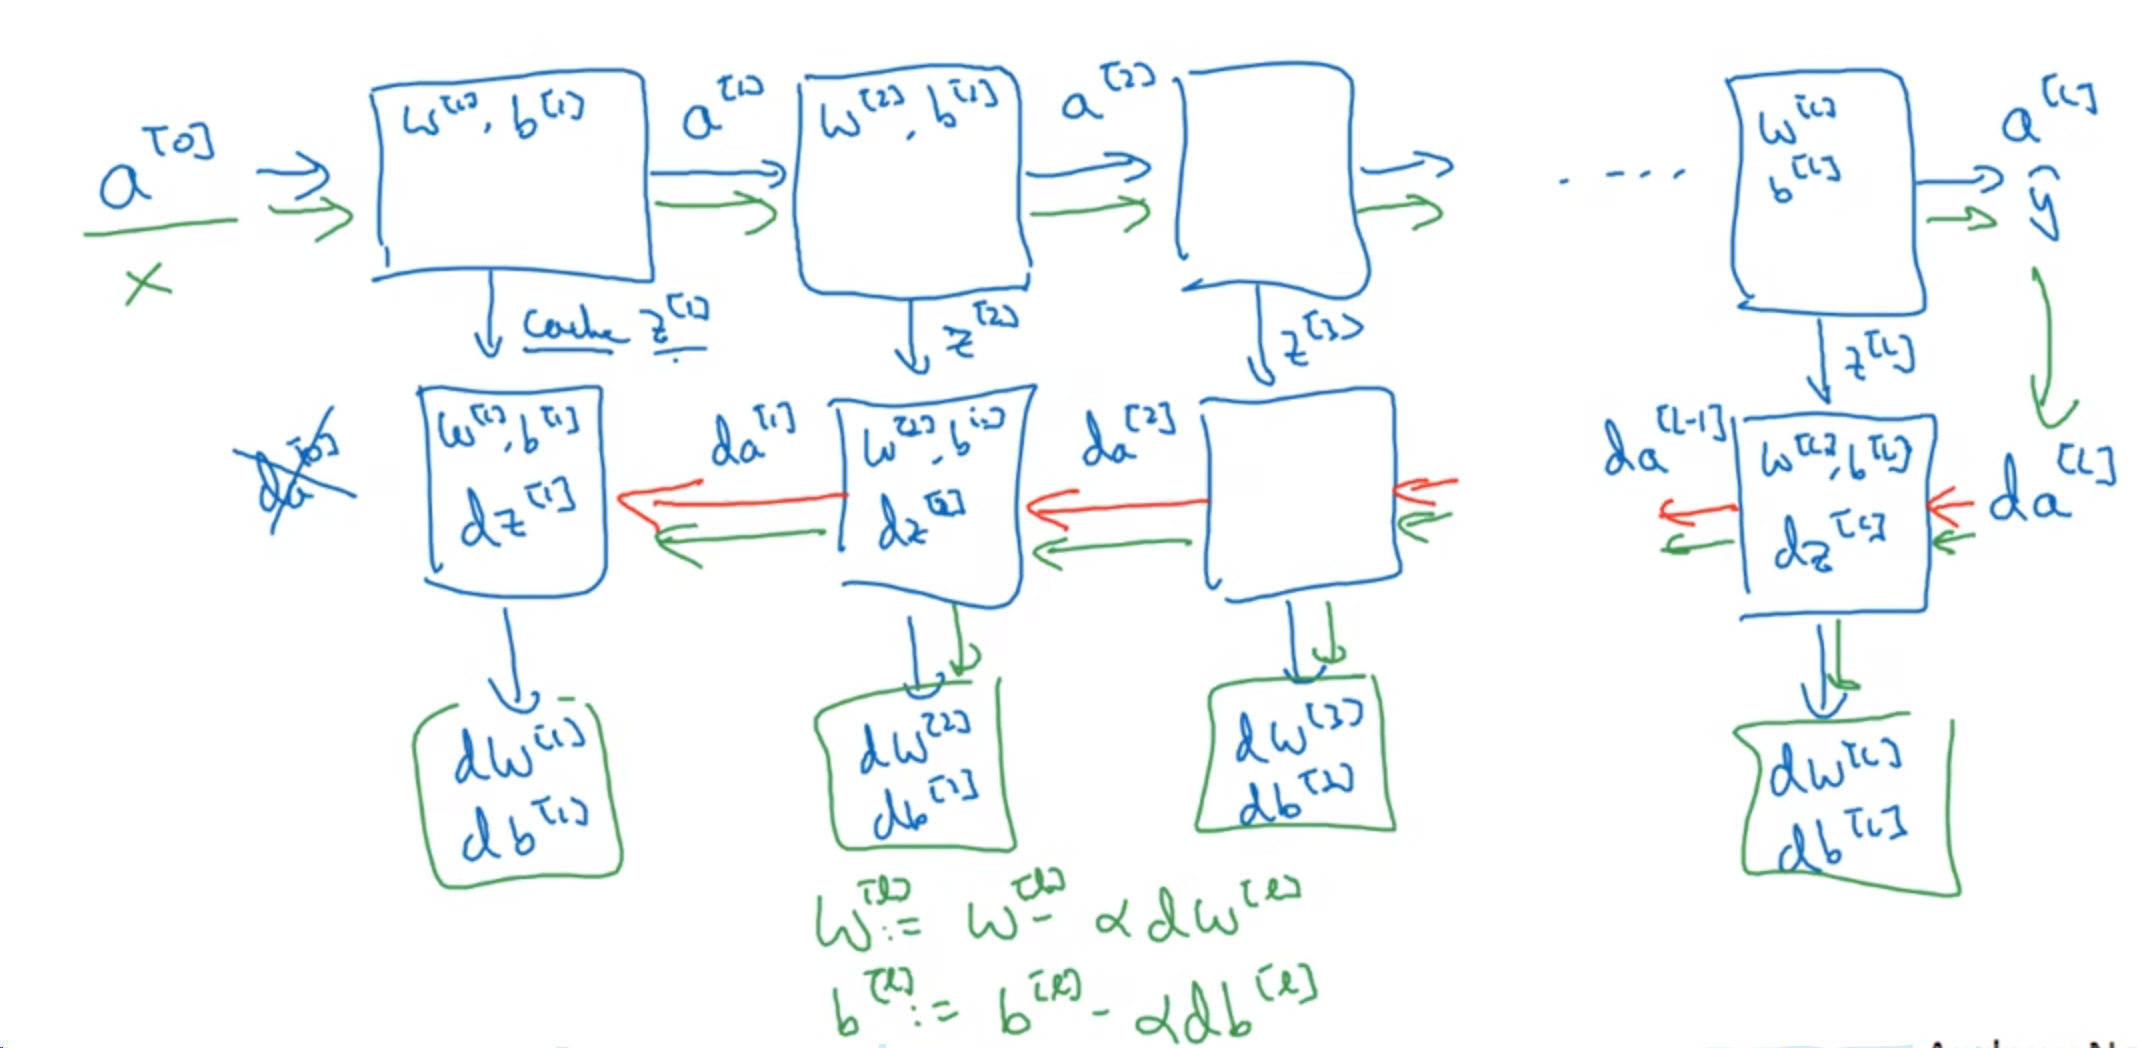 a^[0]
x
w^[1], b^[1]
a^[1]
w^[2], b^[2]
a^[2]
w^[L]
b^[L]
a^[L]
ŷ
cache z^[1]
z^[2]
z^[3]
z^[L]
da^[0]
w^[1], b^[1]
dz^[1]
da^[1]
w^[2], b^[2]
dz^[2]
da^[2]
da^[L-1]
w^[L], b^[L]
dz^[L]
da^[L]
dw^[1]
db^[1]
dw^[2]
db^[2]
dw^[3]
db^[3]
dw^[L]
db^[L]
w^[l] := w^[l] - αdw^[l]
b^[l] := b^[l] - αdb^[l]